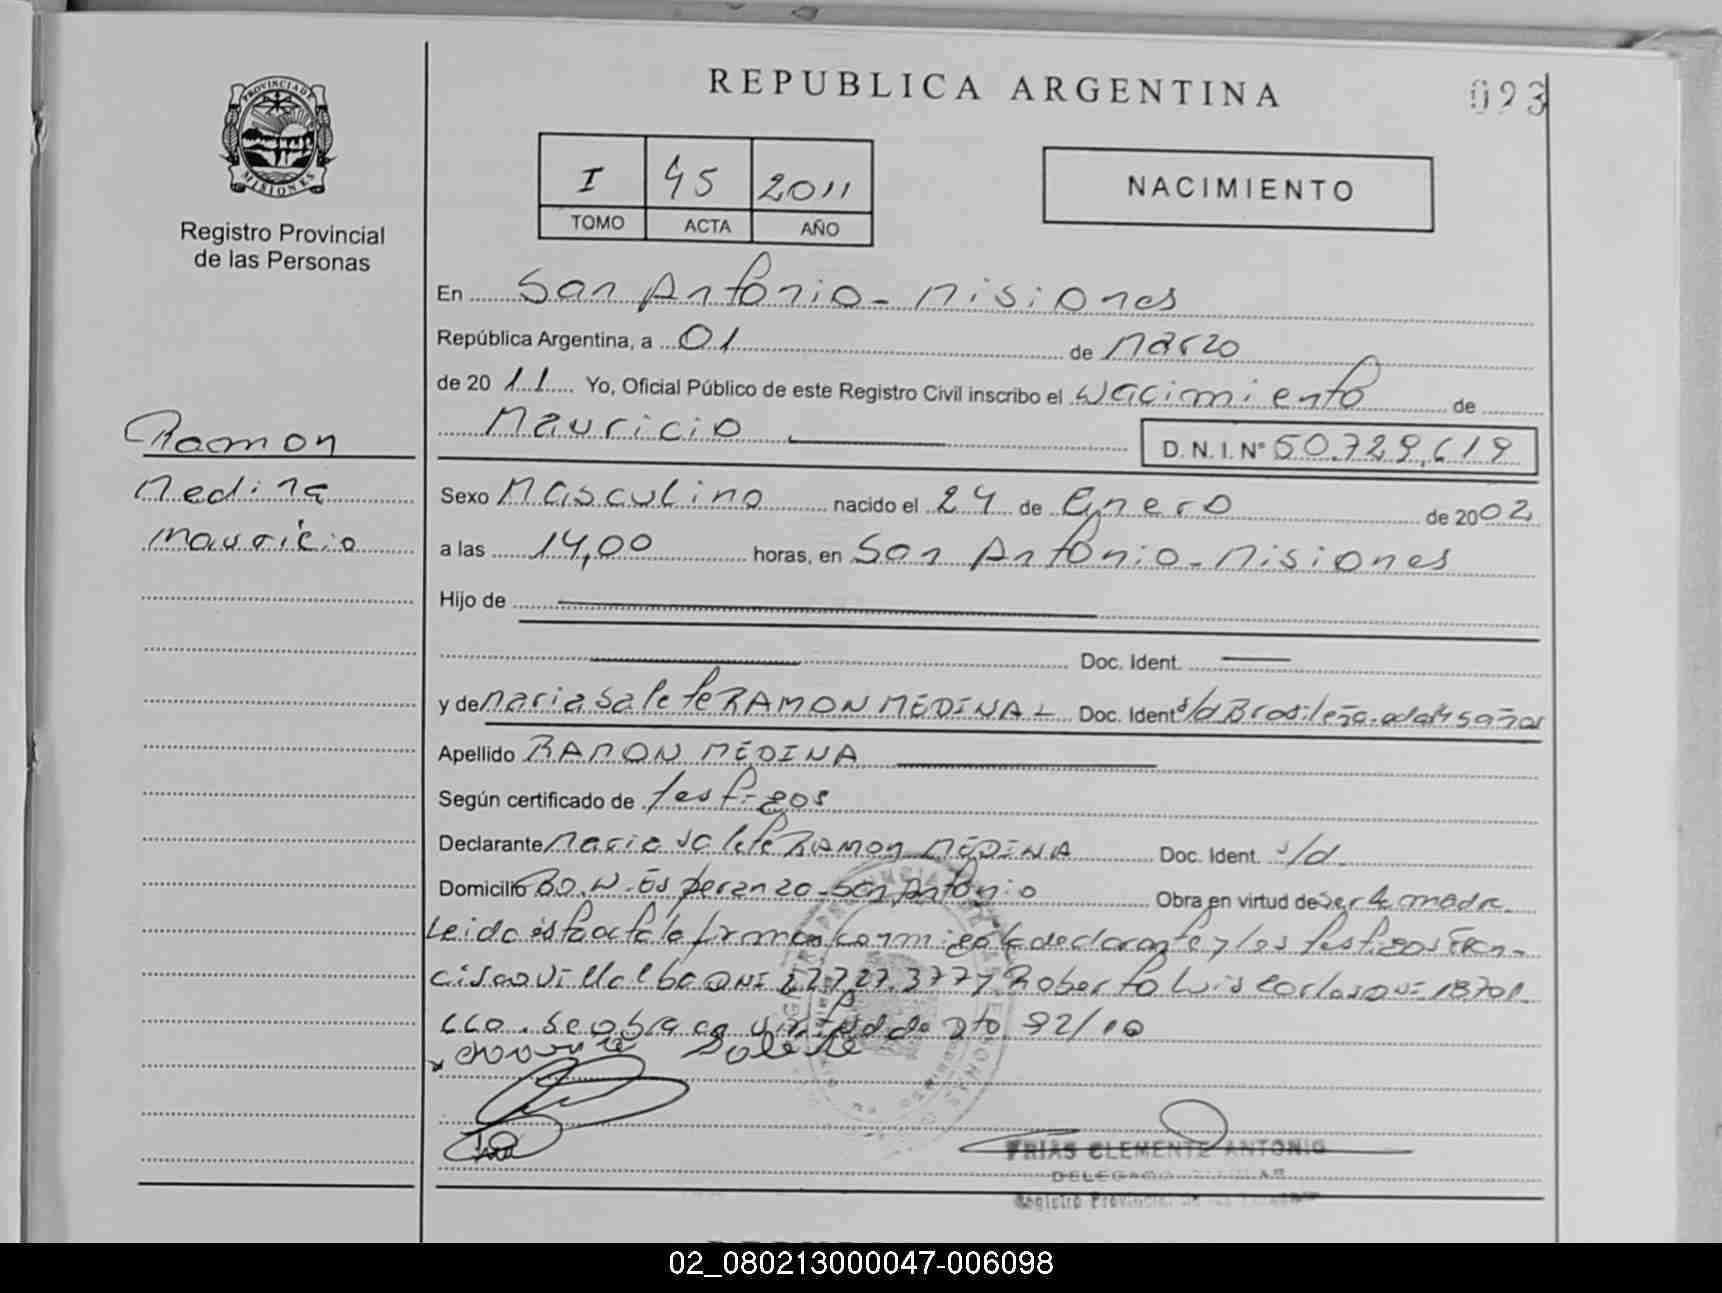 REPUBLICA ARGENTINA
093
PROVINCIA DE
MISIONES
Registro Provincial
de las Personas
I 45 2011
TOMO ACTA AÑO
NACIMIENTO
En San Antonio - Misiones
República Argentina, a 01 de Marzo
de 20 11 Yo, Oficial Público de este Registro Civil inscribo el Nacimiento de
Mauricio D. N. I. Nº 50.729.619
Ramon
Medina
Mauricio
Sexo Masculino nacido el 24 de Enero de 2002
a las 14,00 horas, en San Antonio - Misiones
Hijo de
Doc. Ident.
y de Maria Salete RAMON MEDINA Doc. Ident s/d Brasileña
Apellido RAMON MEDINA
Según certificado de testigos
Declarante Maria Salete RAMON MEDINA Doc. Ident. s/d.
Domicilio Bo. N. Esperanza - San Antonio Obra en virtud de ser la madre
Leido esta acta la firman conmigo la declarante y los testigos Fran-
cisco Villalba DNI 27.727.377 y Roberto Luis DNI 18701.
se obra en virtud de Dto 92/10
Salete
FRIAS CLEMENTE ANTONIO
DELEGADO TITULAR
Registro Provincial de las
02_080213000047-006098